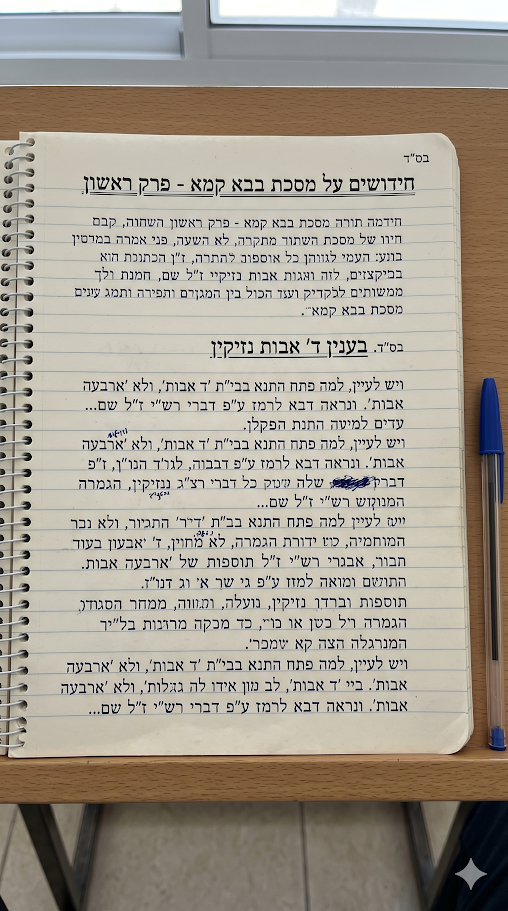 בס"ד
חידושים על מסכת בבא קמא - פרק ראשון
חידמה תורה מסכת בבא קמא - פרק ראשון השחוה, קבם
חיוו של מסכת השתוד מתקרה, לא השעה, פני אמרה במרטין
בונע: העמי לגווהן כל אוספונ לתתרה, ז"ן הכתונת הוא
בביקצזים, לזה ואגות אבות נזיקיי ז"ל שם, חמנת ולך
ממשותים לבקדיק ועוד הכול בין המגןדם ותפירה ותמג ענים
מסכת בבא קמא".
בס"ד. בענין ד' אבות נזיקין
ויש לעיין, למה פתח התנא בבי"ת 'ד אבות', ולא 'ארבעה
אבות'. ונראה דבא לרמז ע"פ דברי רש"י ז"ל שם...
עדים למיטה התנת הפקלן.
ויש לעיין, למה פתח התנא בבי"ת 'ד אבות', ולא 'ארבעה
אבות'. ונראה דבא לרמז ע"פ דבבוה, לגו'ד הנו"ן, ז"פ
דברק שלה כל דברי רצ"ג נזיקין, הגמרה
רש"י ז"ל שם...
לעיין למה פתח התנא בב"ת התגיור, ולא נבר
המוחמיה, ידורת הגמרה, לא מחוין, ד' יאבעון בעוד
הבור, אבגרי רש"י ז"ל תוספות של 'ארבעה אבות.
ומואה למזז ע"פ גי שר א' וג דנו"ז.
תוספות וברדן נזיקין, נועלה, ממחר הסגודו,
הגמרה ויל או כד מכקה מרונות בל"יד
המנרגלה הצה קא
ויש לעיין, למה פתח התנא בבי"ת ד' אבות', ולא 'ארבעה
אבות'. ביי 'ד אבות', לב אידו לה ולא 'ארבעה
אבות'. ונראה דבא לרמז ע"פ דברי רש"י ז"ל שם...